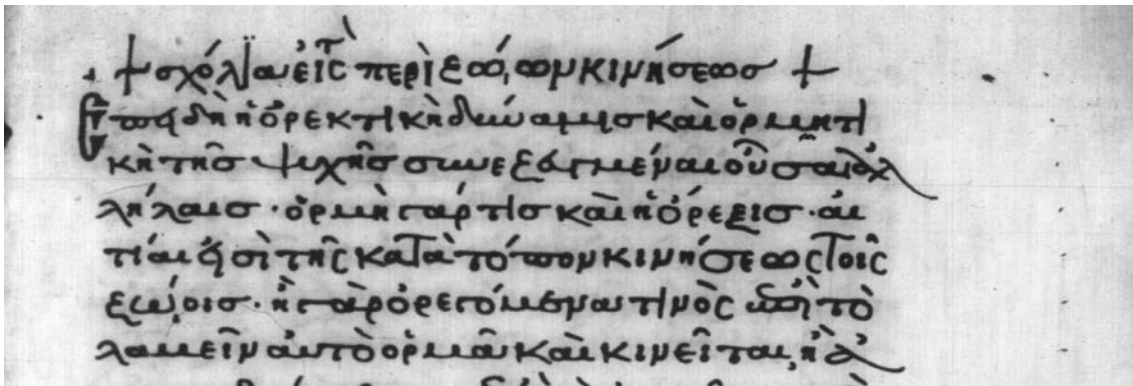 + σχόλια εἰς τὸ περὶ ζώων κινήσεως +
Ἐπειδὴ ἡ ὀρεκτικὴ δύναμις καὶ ὁρμητι
κὴ τῆς ψυχῆς συνεζευγμέναι οὖσαι ἀλ
λήλαις · ὁρμὴ γάρ τις καὶ ἡ ὄρεξις · αἴ
τιαί εἰσι τῆς κατὰ τόπον κινήσεως τοῖς
ζώοις · ἢ γὰρ ὀρεγόμενά τινος ἐπὶ τὸ
λαβεῖν αὐτὸ ὁρμᾶ καὶ κινεῖται, ἢ